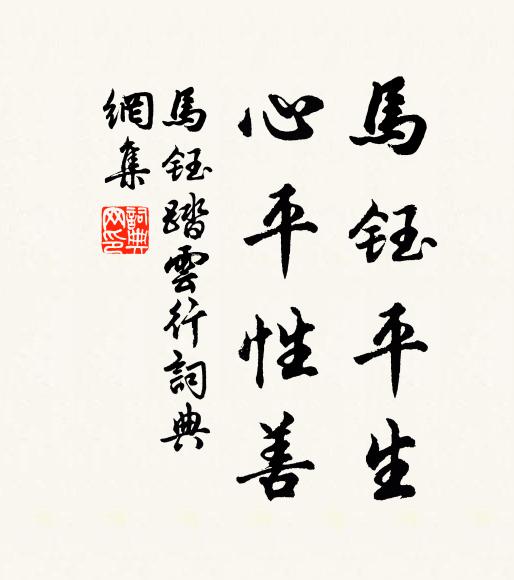 馬鈺平生
心平性善
馬鈺踏雲行詞典
網集
詞典
网印